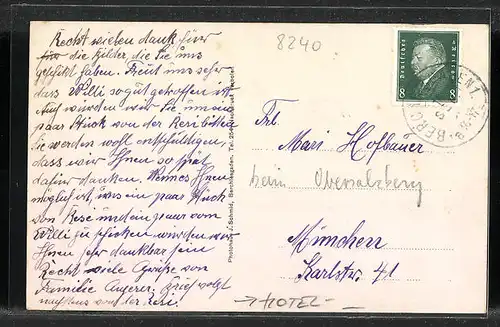 Recht vielen dank für
die Bilder, die Sie uns
geschikt haben. Freut uns sehr
dass Willi so gut getroffen ist
Auch würden wir Sie um ein
paar Stück von der Resi bitten
Sie werden wohl entschuldigen,
dass wir Ihnen so spät
dafür danken. Wenn es Ihnen
möglich ist, uns ein paar Stück
von Rese und ein paar vom
Willi zu schicken würden wir
Ihnen sehr dankbar sein
Recht viele Grüße von
Familie Angerer. Brief folgt
nachhaus von der Resi.
Photohaus J. Schmid, Berchtesgaden. Tel. 256
8240
Deutsches Reich
8 8
BERCH
Frl.
Mari Hofbauer
beim Obersalzberg
München
Karlstr. 41
→ HOTEL -